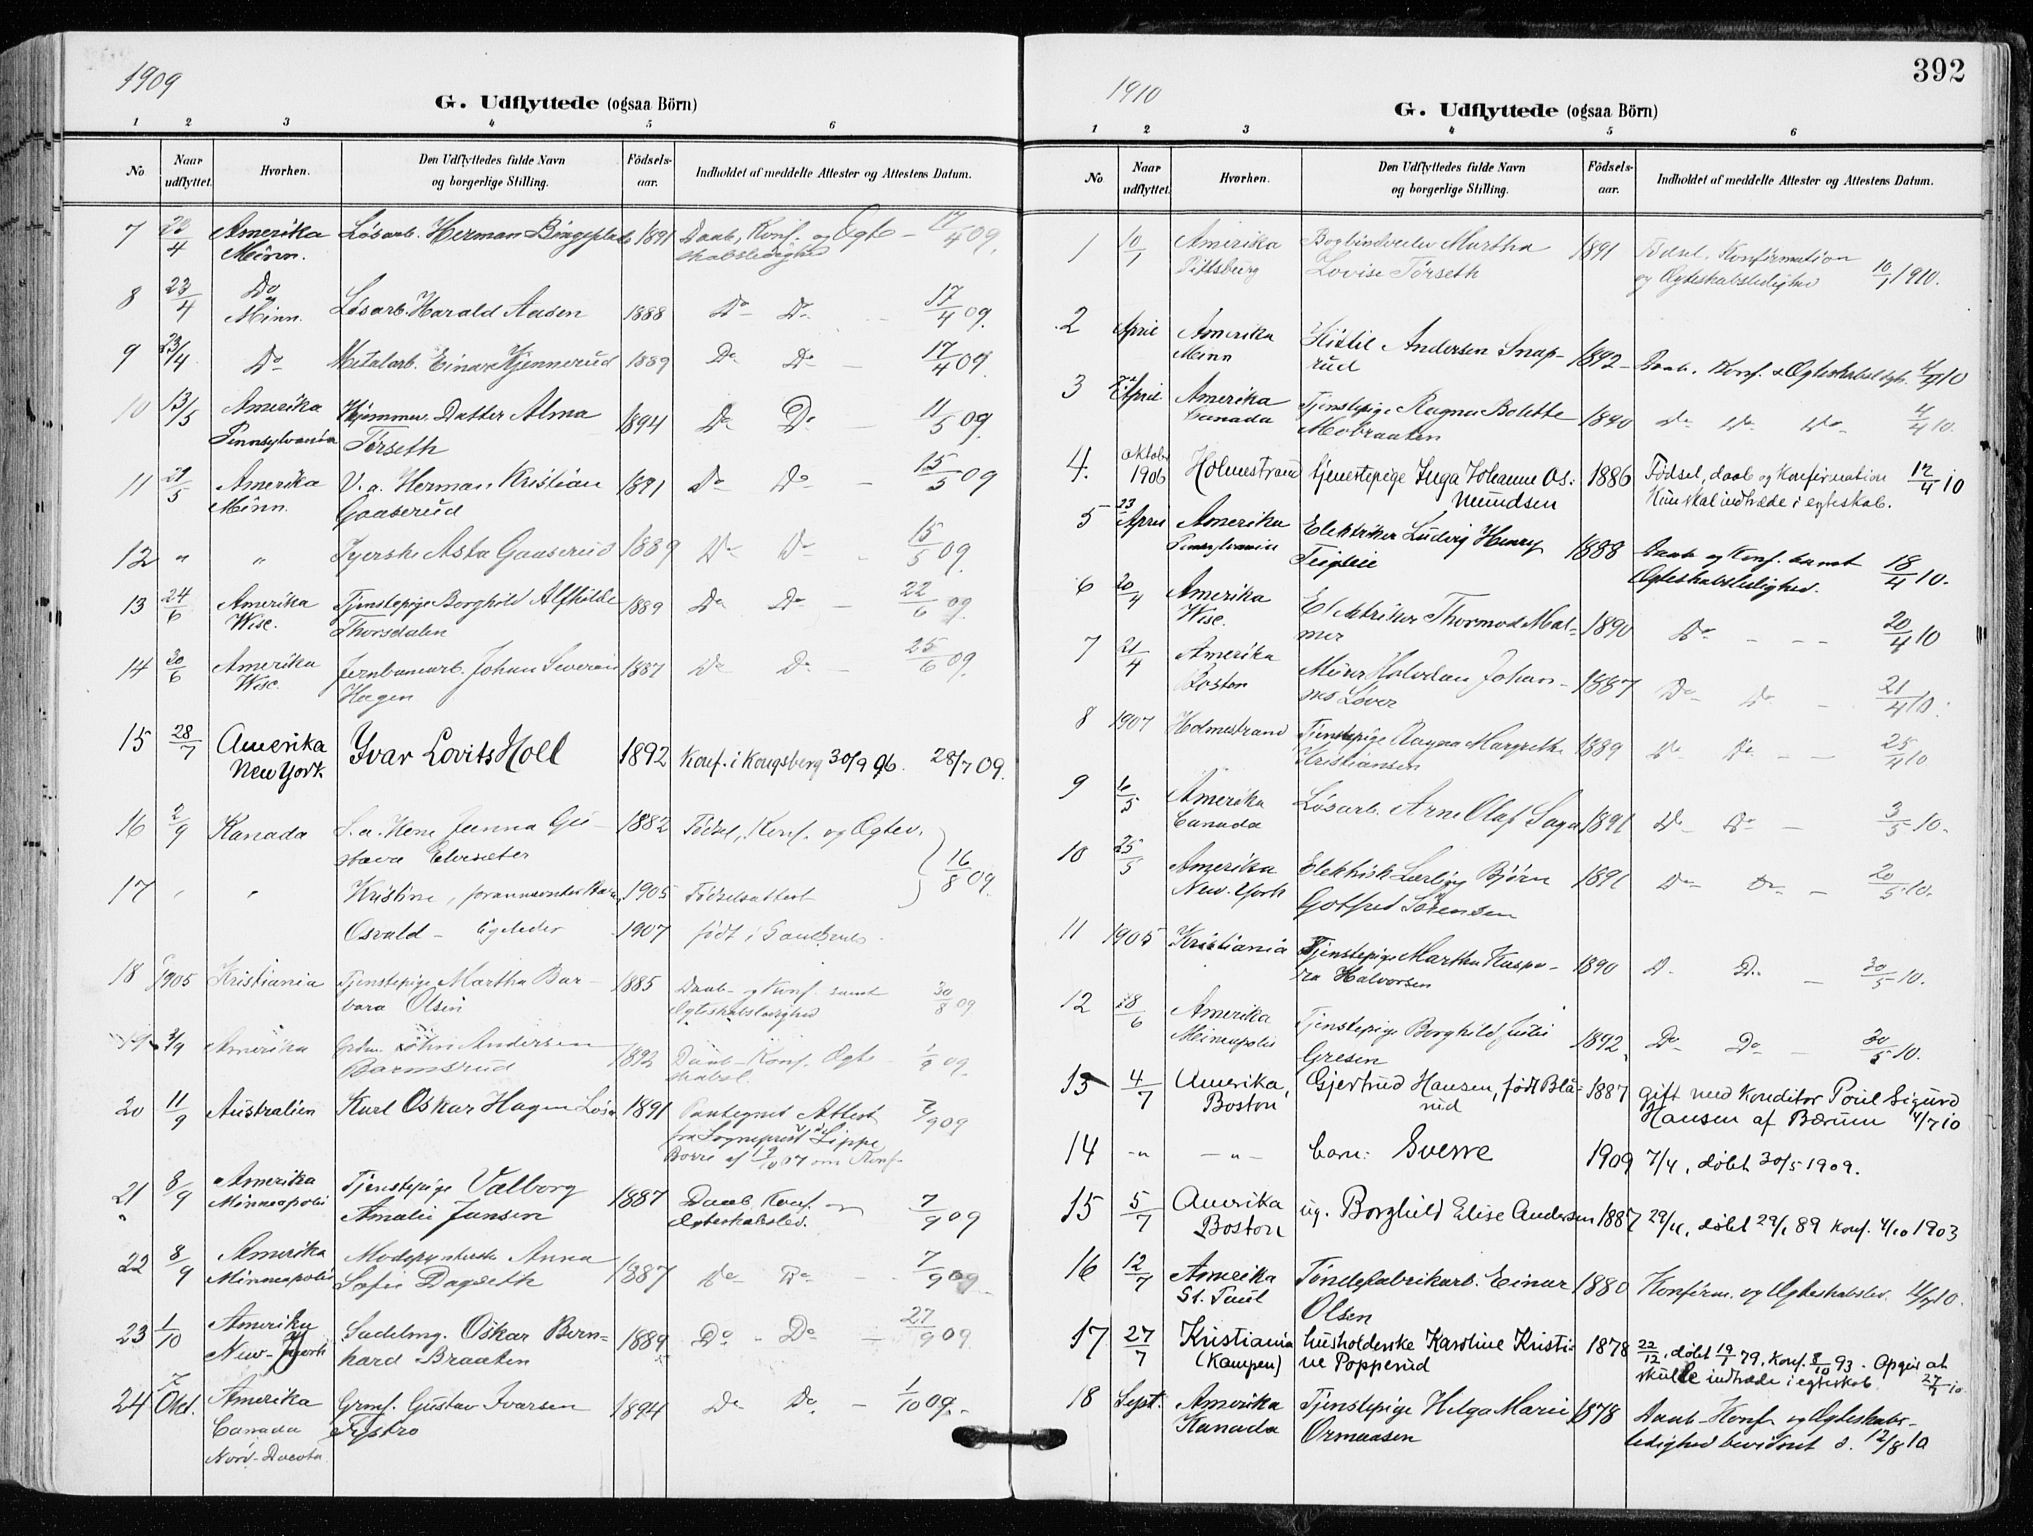 1909
G. Udflyttede (ogsaa Börn)
1 2 3 4 5 6
No Naar udflyttet. Hvorhen. Den Udflyttedes fulde Navn og borgerlige Stilling. Födsels-aar. Indholdet af meddelte Attester og Attestens Datum.
7 23/4 Amerika Løsarb. Herman 1891 Daab, Konf. og Egte- 17/4 09.
Minn. skabsledighed
8 23/4 Do Minn. Løsarb. Harald Aasen 1888 Do Do 17/4 09.
9 23/4 Do Metalarb. Einar Kjennerud 1889 Do Do 17/4 09.
10 13/5 Amerika Hjemmev. Datter Alma 1894 Do Do 11/5 09.
Pennsylvania Tørseth
11 21/5 Amerika V. a. Herman Kristian 1891 Do Do 15/5 09
Minn. Gaaserud
12 " " Syerske Asta Gaaserud 1889 Do Do 15/5 09.
13 24/6 Amerika Tjenstepige Borghild Alfhilde 1889 Do Do 22/6 09.
Wisc. Thorsdalen
14 30/6 Amerika Jernbanearb. Johan Severin 1887 Do Do 25/6 09.
Wisc. Hagen
15 28/7 Amerika Yvar Lovits Holl 1892 Konf. i Kongsberg 30/9 06. 28/7 09.
New York
16 2/9 Kanada Jenna Gu- 1882 Fødsel, Konf. og Egtev.
stava 16/8 09.
17 " " Kristine, 1905 Fødselsattest
Osvald - Ligeledes 1907 født i
18 1905 Kristiania Tjenstepige Martha Bar- 1885 Daab- og Konf. samt 30/8 09
bara Olsen Egteskabsledighed
19 Amerika Andersen 1892 Daab- Konf. Egte- 1/9 09.
skabsl.
20 11/9 Australien Karl Oskar Hagen Løsa 1891 Attest 7/9 09
fra Sogneprest Lippe
Borre af 07 om Konf.
21 8/9 Amerika Tjenstepige Valborg 1887 Daab Konf. og 7/9 09
Minneapolis Amalie Jansen Egteskabsled.
22 8/9 Amerika Modepynterske Anna 1887 Do Do 7/9 09
Minneapolis Sofie Dagseth
23 1/10 Amerika Sadelmg. Oskar Bern- 1889 Do Do 27/9 09
New-York hard Braaten
24 7 Okt. Amerika Grmf. Gustav Ivarsen 1894 Do Do 1/10 09.
Canada Fystro
Nord-Dacota
1910
392
G. Udflyttede (ogsaa Börn)
1 2 3 4 5 6
No. Naar udflyttet. Hvorhen. Den Udflyttedes fulde Navn og borgerlige Stilling. Födsels-aar. Indholdet af meddelte Attester og Attestens Datum.
1 10/1 Amerika Bogbinderelev Martha 1891 Fødsel, Konfirmation
Pittsburg Lovise Tørseth og Egteskabsledighed 10/1 1910.
2 April Amerika Kittil Andersen Snap- 1892 Daab. Konf. & Egteskabsledigh. 4/4 10
Minn rud
3 April Amerika Tjenstepige Ragna Bolette 1890 Do Do Do 4/4 10.
Canada Mobraaten
4. Oktober 1906 Holmestrand tjenestepige Inga Johanne Os- 1886 Fødsel, daab og Konfirmation 12/4 10
mundsen Hun skal indtræde i egteskab.
5 23 April Amerika Elektriker Ludvig Henry 1888 Daab og Konf. samt 18/4 10.
Pensylvanien Teigleie Egteskabsledighed.
6 20/4 Amerika Elektriker Thormod Mal- 1890 Do 20/4 10
Wisc. mer
7 21/4 Amerika Murer Halvdan Johan- 1887 Do Do 21/4 10.
Boston nes Løver
8 1907 Holmestrand Tjenstepige Ragna Margrethe 1889 Do Do 25/4 10
Kristiansen
9 6/5 Amerika Løsarb. Arne Olaf Saga 1891 Do Do 3/5 10.
Canada
10 25/5 Amerika Elektrisk Lærling Bjørn 1891 Do Do 20/5 10.
New-York Gotfred Sørensen
11 1905 Kristiania Tjenstepige Martha Kaspa- 1890 Do Do 30/5 10.
ra Halvorsen
12 18/6 Amerika Tjenstepige Borghild Julie 1892 Do Do 30/5 10.
Mineapolis Gresen
13 4/7 Amerika, Gjertrud Hansen, født Blå- 1887 gift med Konditor Poul Sigurd
Boston rud Hansen af Bærum 4/7 10
14 -"- -"- barn: Sverre 1909 7/4, døbt 30/5 1909.
15 5/7 Amerika ug. Borghild Elise Andersen 1887 29/11, døbt 29/1 89 Konf. 4/10 1903
Boston
16 12/7 Amerika Tøndefabrikarb. Einar 1880 Konfirm. og Egteskabslev. 11/7 10.
St. Paul Olsen
17 27/7 Kristiania husholderske Karoline Kristi- 1878 22/12, døbt 19/1 79, Konf. 8/10 93. Opgir at
(Kampen) ne Popperud skulle indtræde i egteskab 27/7 10
18 Sept. Amerika Tjenstepige Helga Marie 1878 Daab- Konf. og Egteskabs-
Kanada Ormaasen ledighed bevidnet d. 12/8 10